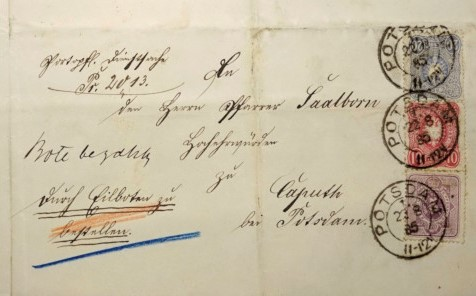 Portopfl. Dienstsache
Nr. 2013.
An
den Herrn Pfarrer Saalborn
Hochehrwürden
zu
Caputh
bei Potsdam.
Bote bezahlt
durch Eilboten zu
bestellen.
POTSDAM
22 8
85
11-12V
POTSDAM
22 8
85
11-12V
10
POTSDAM
22 8
85
11-12V